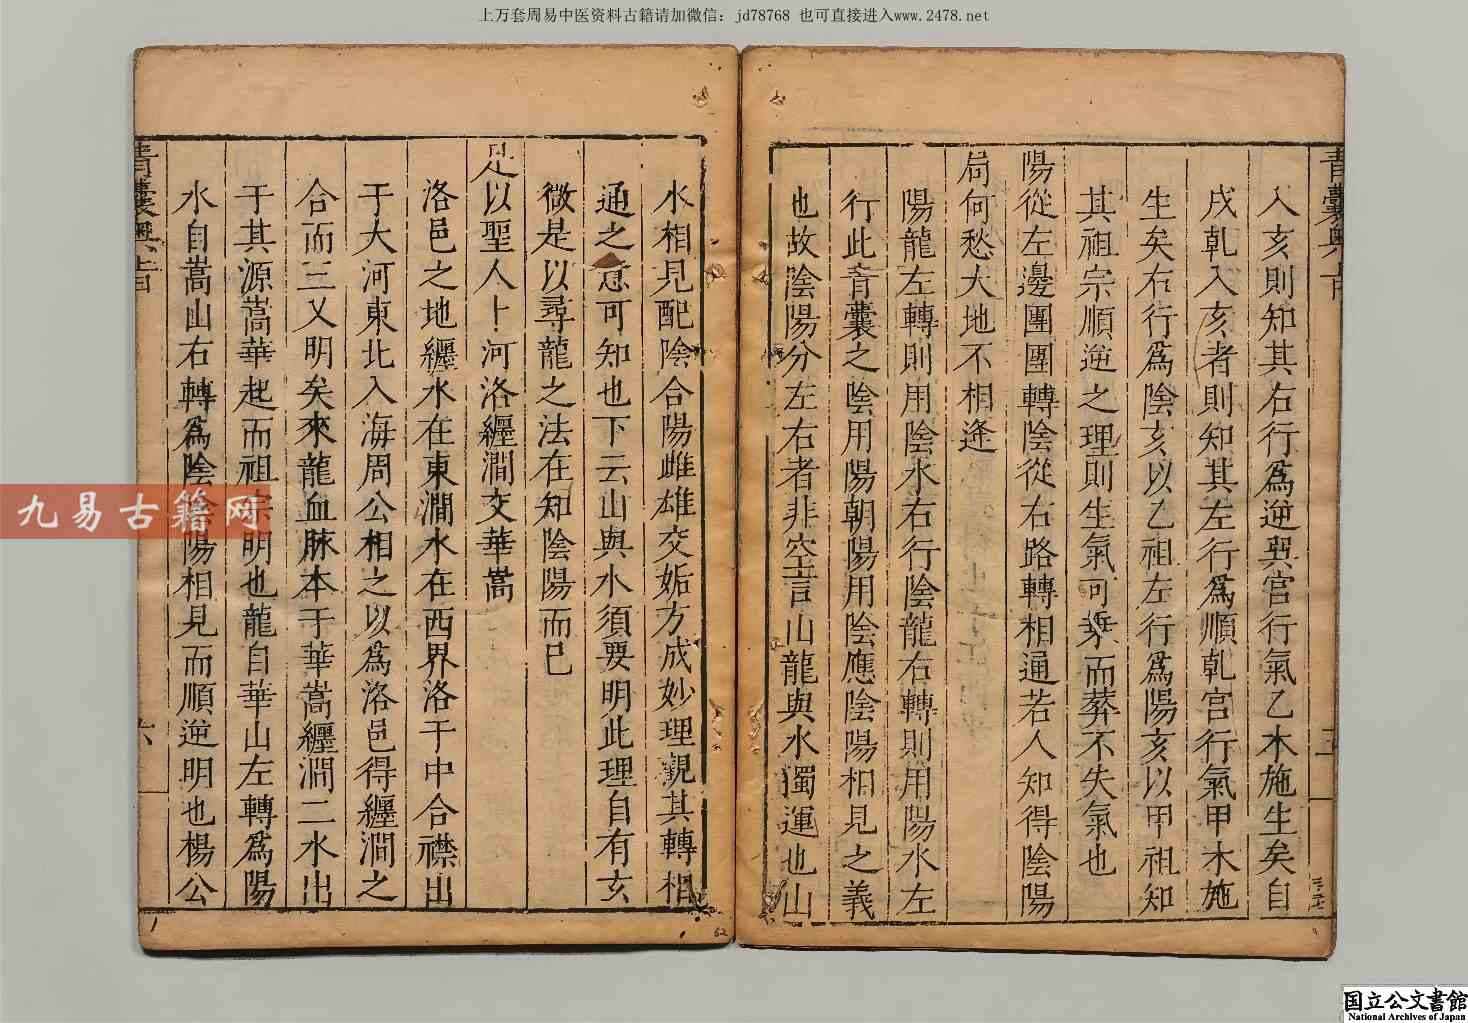 上万套周易中医资料古籍请加微信：jd78768 也可直接进入www.2478.net
入亥則知其右行爲逆巽宫行氣乙木施生矣自
戌乹入亥者則知其左行爲順乹宫行氣甲木施
生矣右行爲陰亥以乙祖左行爲陽亥以甲祖知
其祖宗順逆之理則生氣可乘而葬不失氣也
陽從左邊團團轉陰從右路轉相通若人知得陰陽
局何愁大地不相逢
陽龍左轉則用陰水右行陰龍右轉則用陽水左
行此青囊之陰用陽朝陽用陰應陰陽相見之義
也故陰陽分左右者非空言山龍與水獨運也山
水相見配陰合陽雌雄交姤方成妙理觀其轉相
通之意可知也下云山與水須要明此理自有玄
微是以尋龍之法在知陰陽而已
足以聖人卜河洛纒澗交華嵩
洛邑之地纒水在東澗水在西界洛于中合襟出
于大河東北入海周公相之以爲洛邑得纒澗之
合而三又明矣來龍血脉本于華嵩纒澗二水出
于其源嵩華起而祖宗明也龍自華山左轉爲陽
水自嵩山右轉爲陰陰陽相見而順逆明也楊公
青囊奥旨
六
九易古籍网
62
国立公文書館
National Archives of Japan